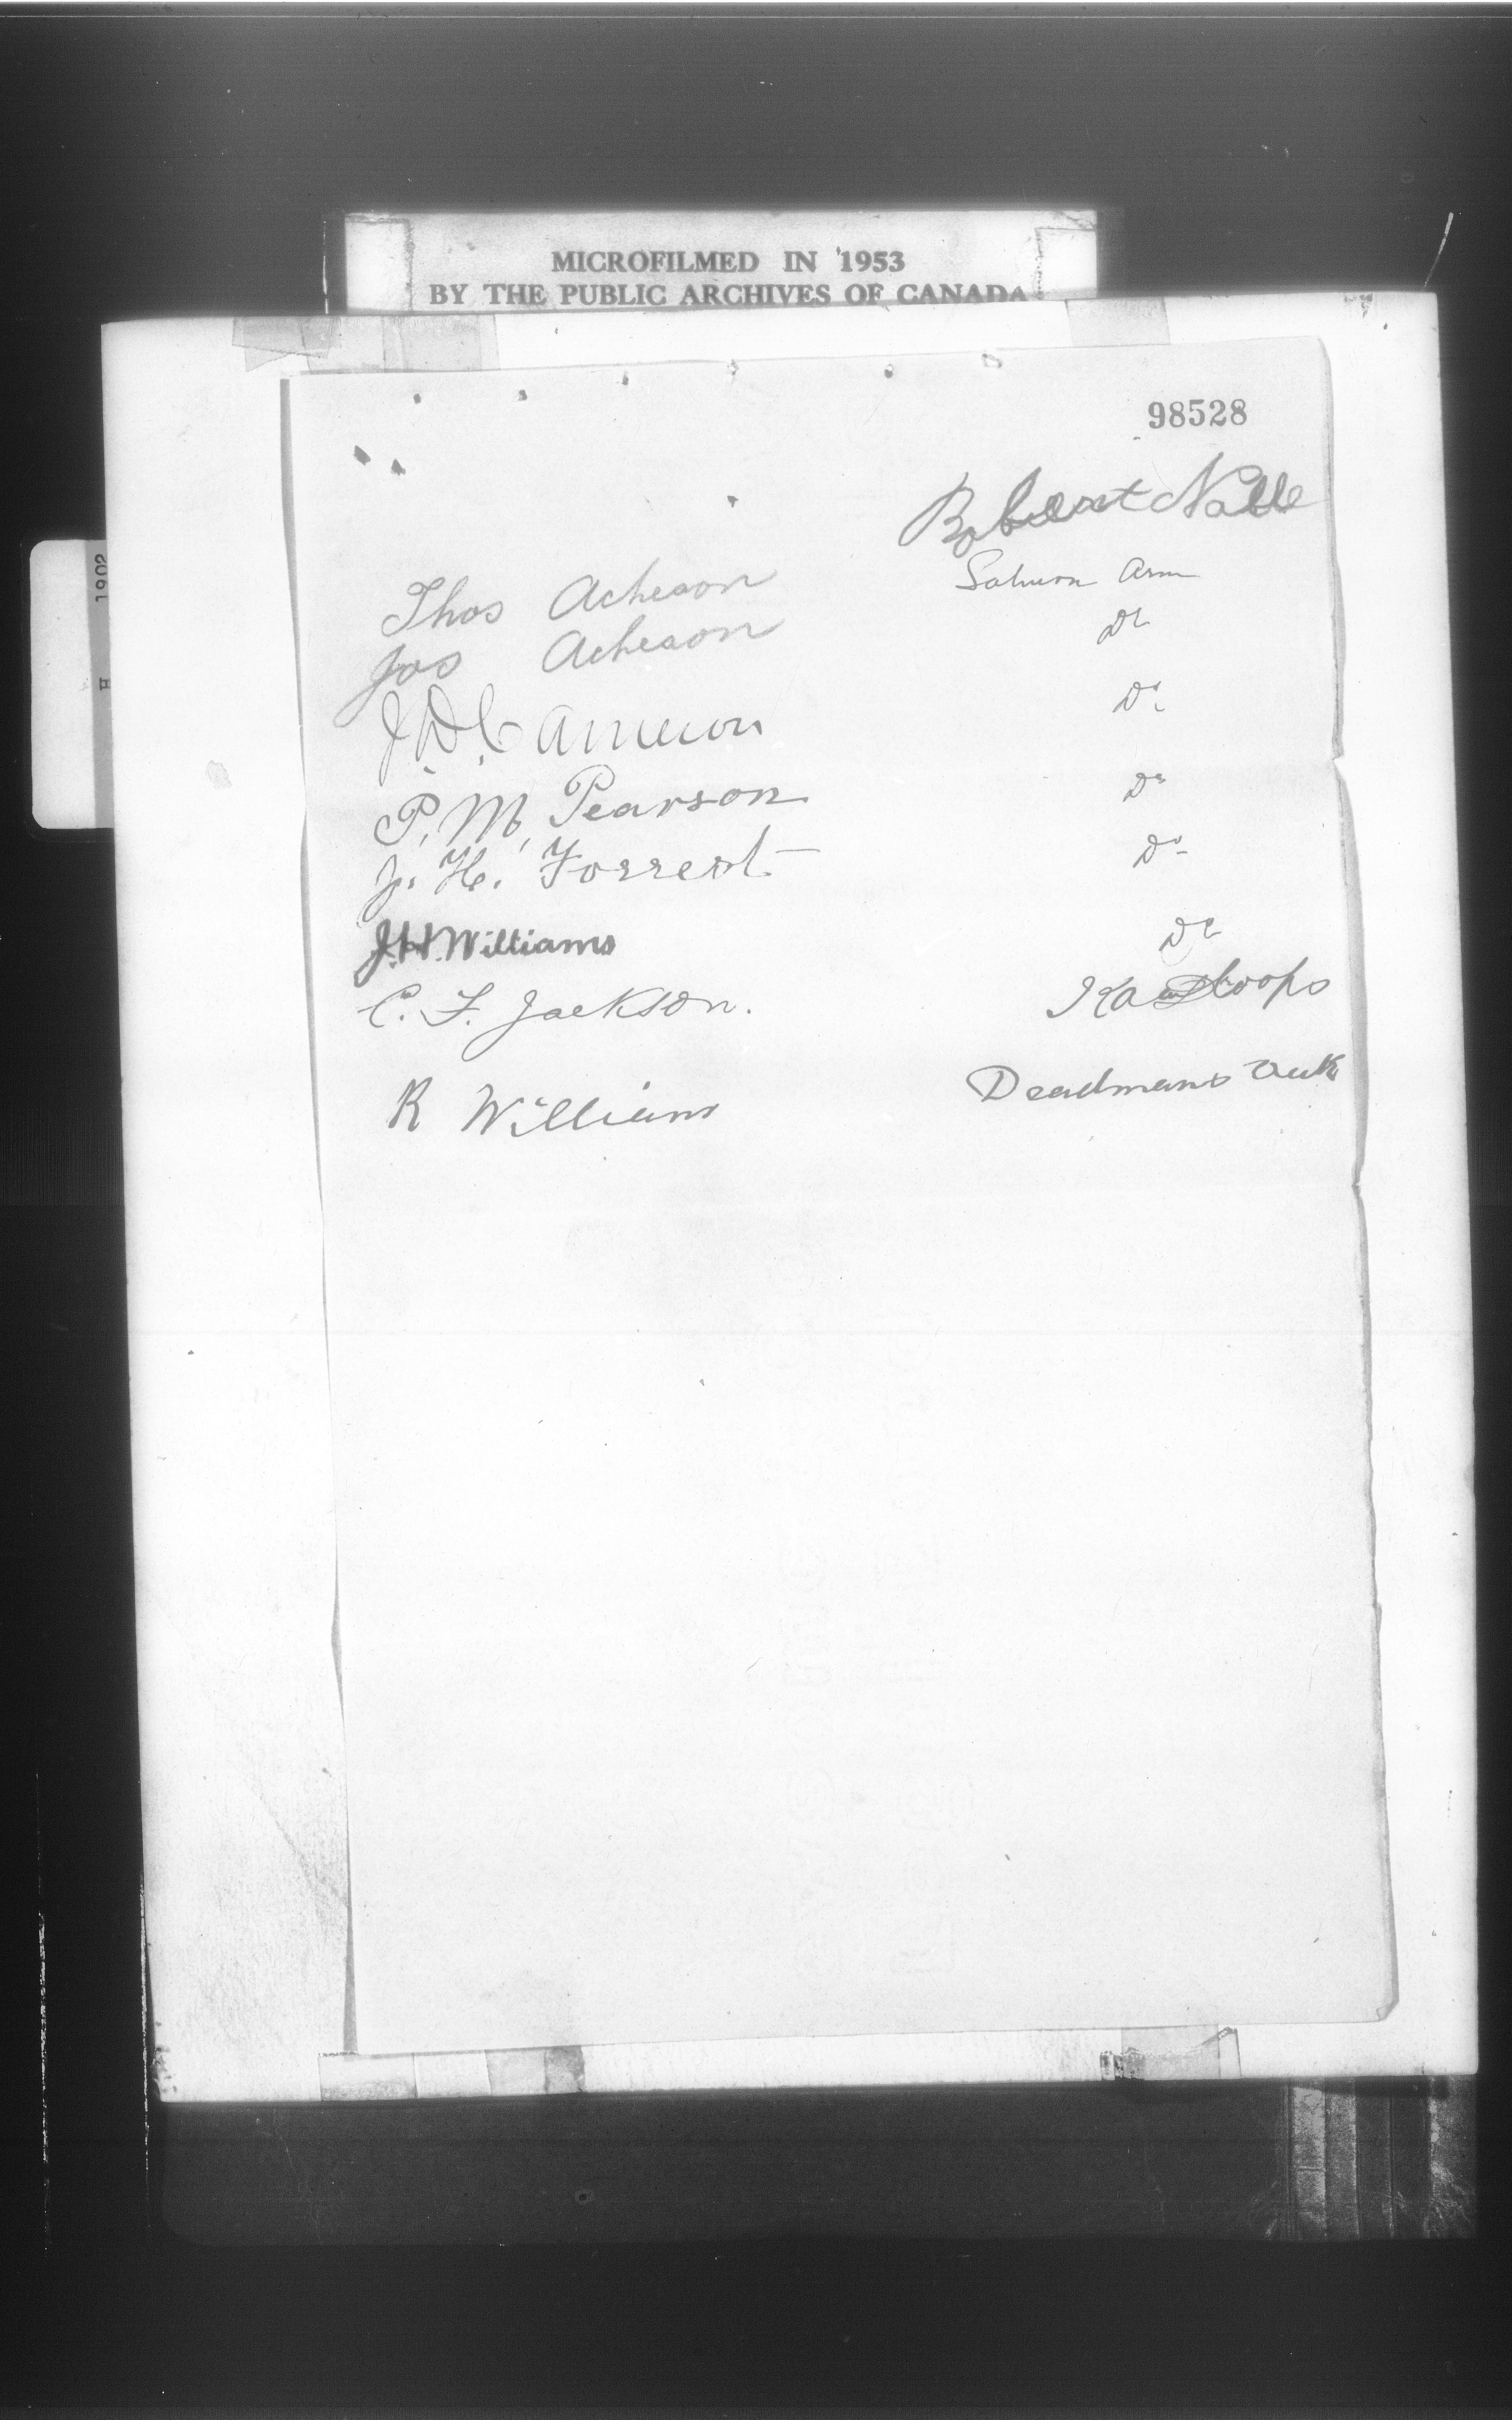 MICROFILMED IN 1953
BY THE PUBLIC ARCHIVES OF CANADA
1902
H
98528
Robert Noble
Thos Acheson Salmon Arm
Jos Acheson Do
J. D. Cameron Do
P. M. Pearson Do
J. H. Forrest Do
J. H. Williams Do
C. F. Jackson. Kamloops
R Williams Deadmans